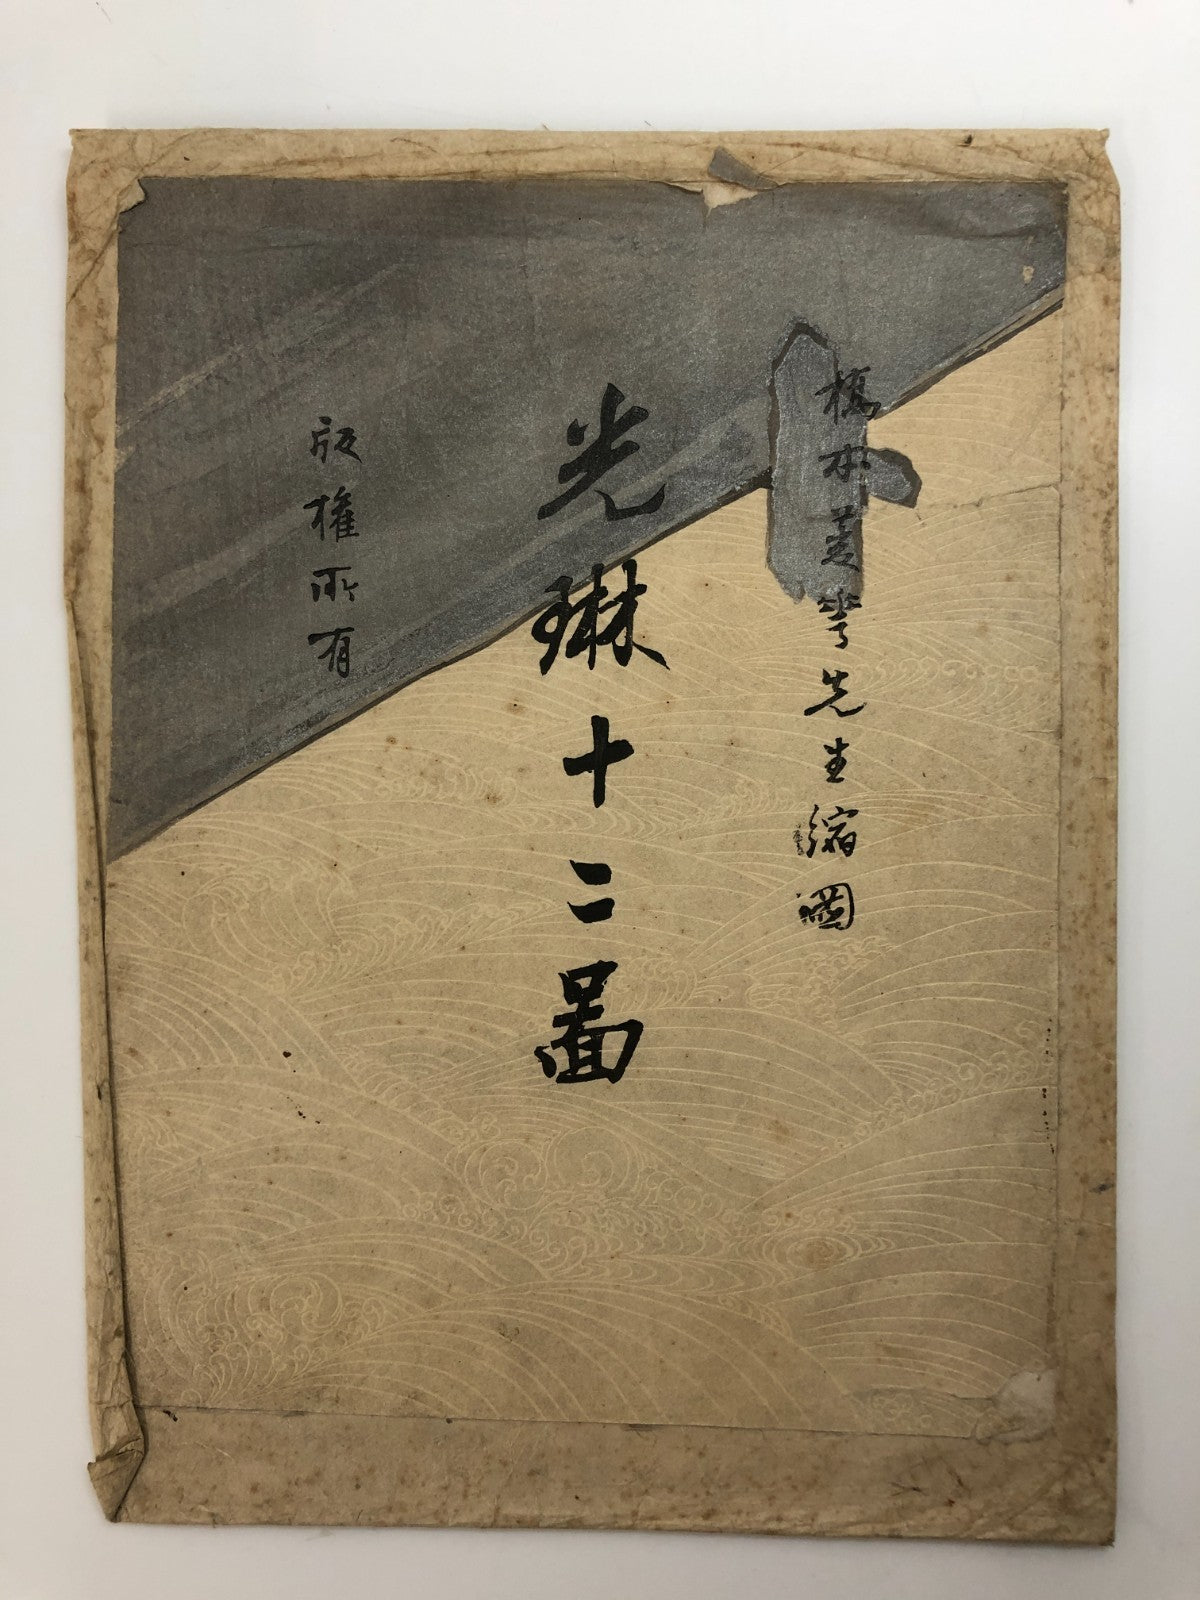 橋本菱華先生縮圖
光琳十二圖
版權所有